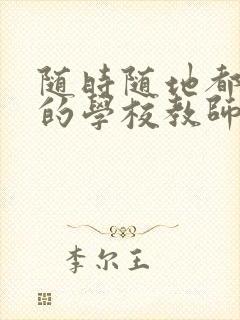 随時随地都
的學校教師
李尔王